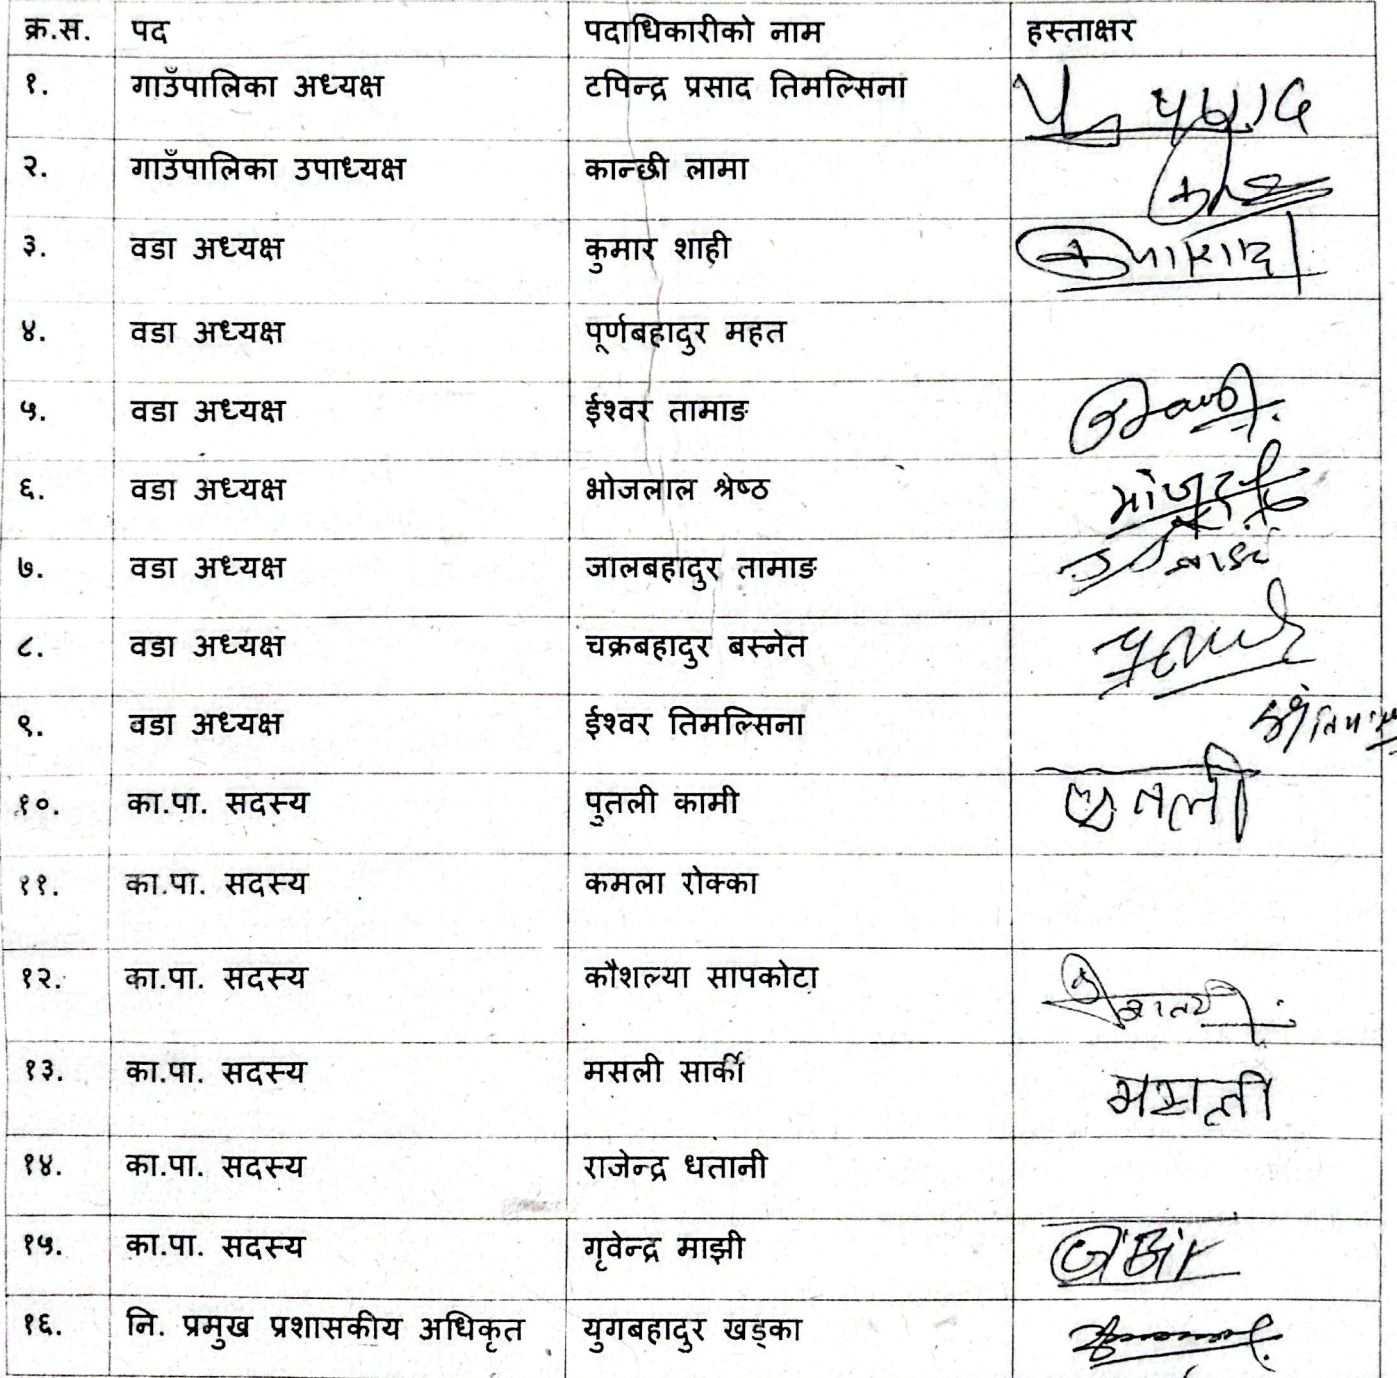 क्र.स. पद पदाधिकारीको नाम हस्ताक्षर
१. गाउँपालिका अध्यक्ष टपिन्द्र प्रसाद तिमल्सिना
२. गाउँपालिका उपाध्यक्ष कान्छी लामा
३. वडा अध्यक्ष कुमार शाही
४. वडा अध्यक्ष पूर्णबहादुर महत
५. वडा अध्यक्ष ईश्वर तामाङ
६. वडा अध्यक्ष भोजलाल श्रेष्ठ
७. वडा अध्यक्ष जालबहादुर तामाङ
८. वडा अध्यक्ष चक्रबहादुर बस्नेत
९. वडा अध्यक्ष ईश्वर तिमल्सिना
१०. का.पा. सदस्य पुतली कामी
११. का.पा. सदस्य कमला रोक्का
१२. का.पा. सदस्य कौशल्या सापकोटा
१३. का.पा. सदस्य मसली सार्की मसली
१४. का.पा. सदस्य राजेन्द्र धतानी
१५. का.पा. सदस्य गृवेन्द्र माझी
१६. नि. प्रमुख प्रशासकीय अधिकृत युगबहादुर खड्का